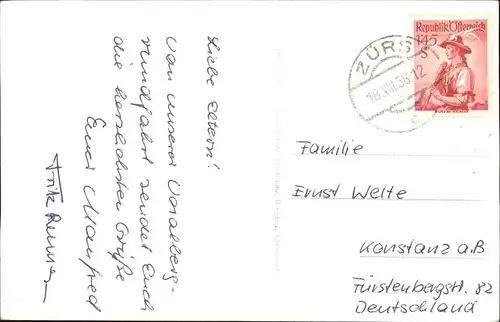 Liebe Eltern!
Von unserer Voralberg-
rundfahrt sendet Euch
die herzlichsten Grüße
Euer Manfred
Fritz
Republik Österreich
145
S
ZÜRS
18.VIII.58.12
c
Familie
Ernst Welte
Konstanz a.B
Fürstenbergstr. 82
Deutschland